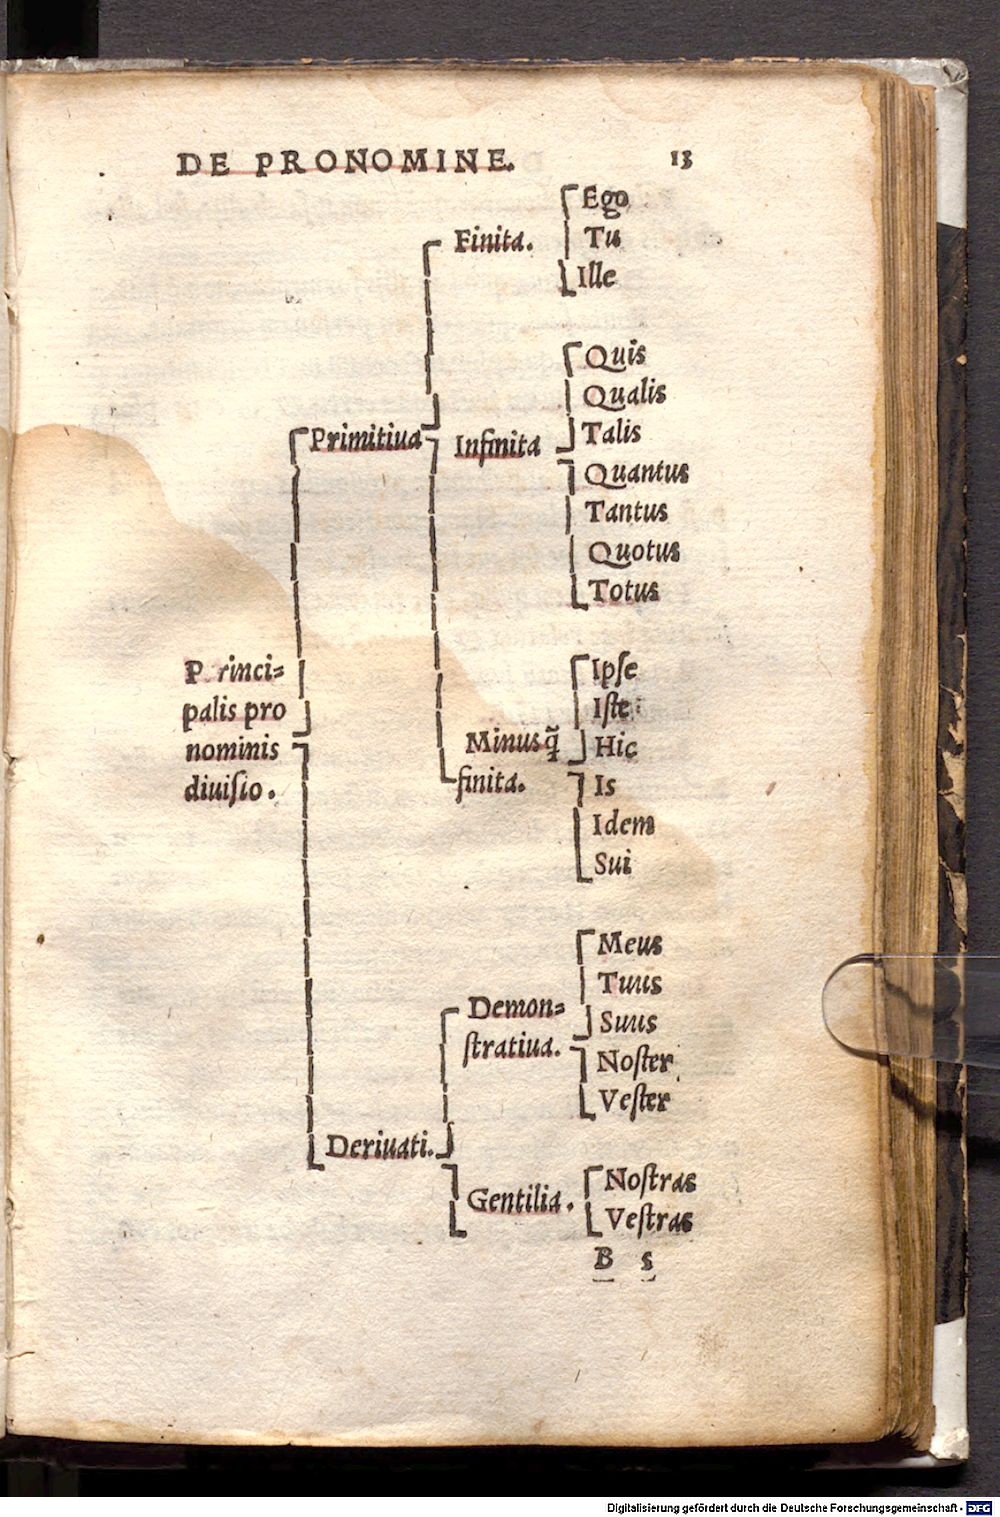 DE PRONOMINE. 13
Principalis pro
nominis
diuiſio.
Primitiua
Finita.
Ego
Tu
Ille
Infinita
Quis
Qualis
Talis
Quantus
Tantus
Quotus
Totus
Minusq̃
finita.
Ipſe
Iſte
Hic
Is
Idem
Sui
Deriuati.
Demon=
ſtratiua.
Meus
Tuus
Suus
Noſter
Veſter
Gentilia.
Noſtras
Veſtras
B 5
Digitalisierung gefördert durch die Deutsche Forschungsgemeinschaft - DFG